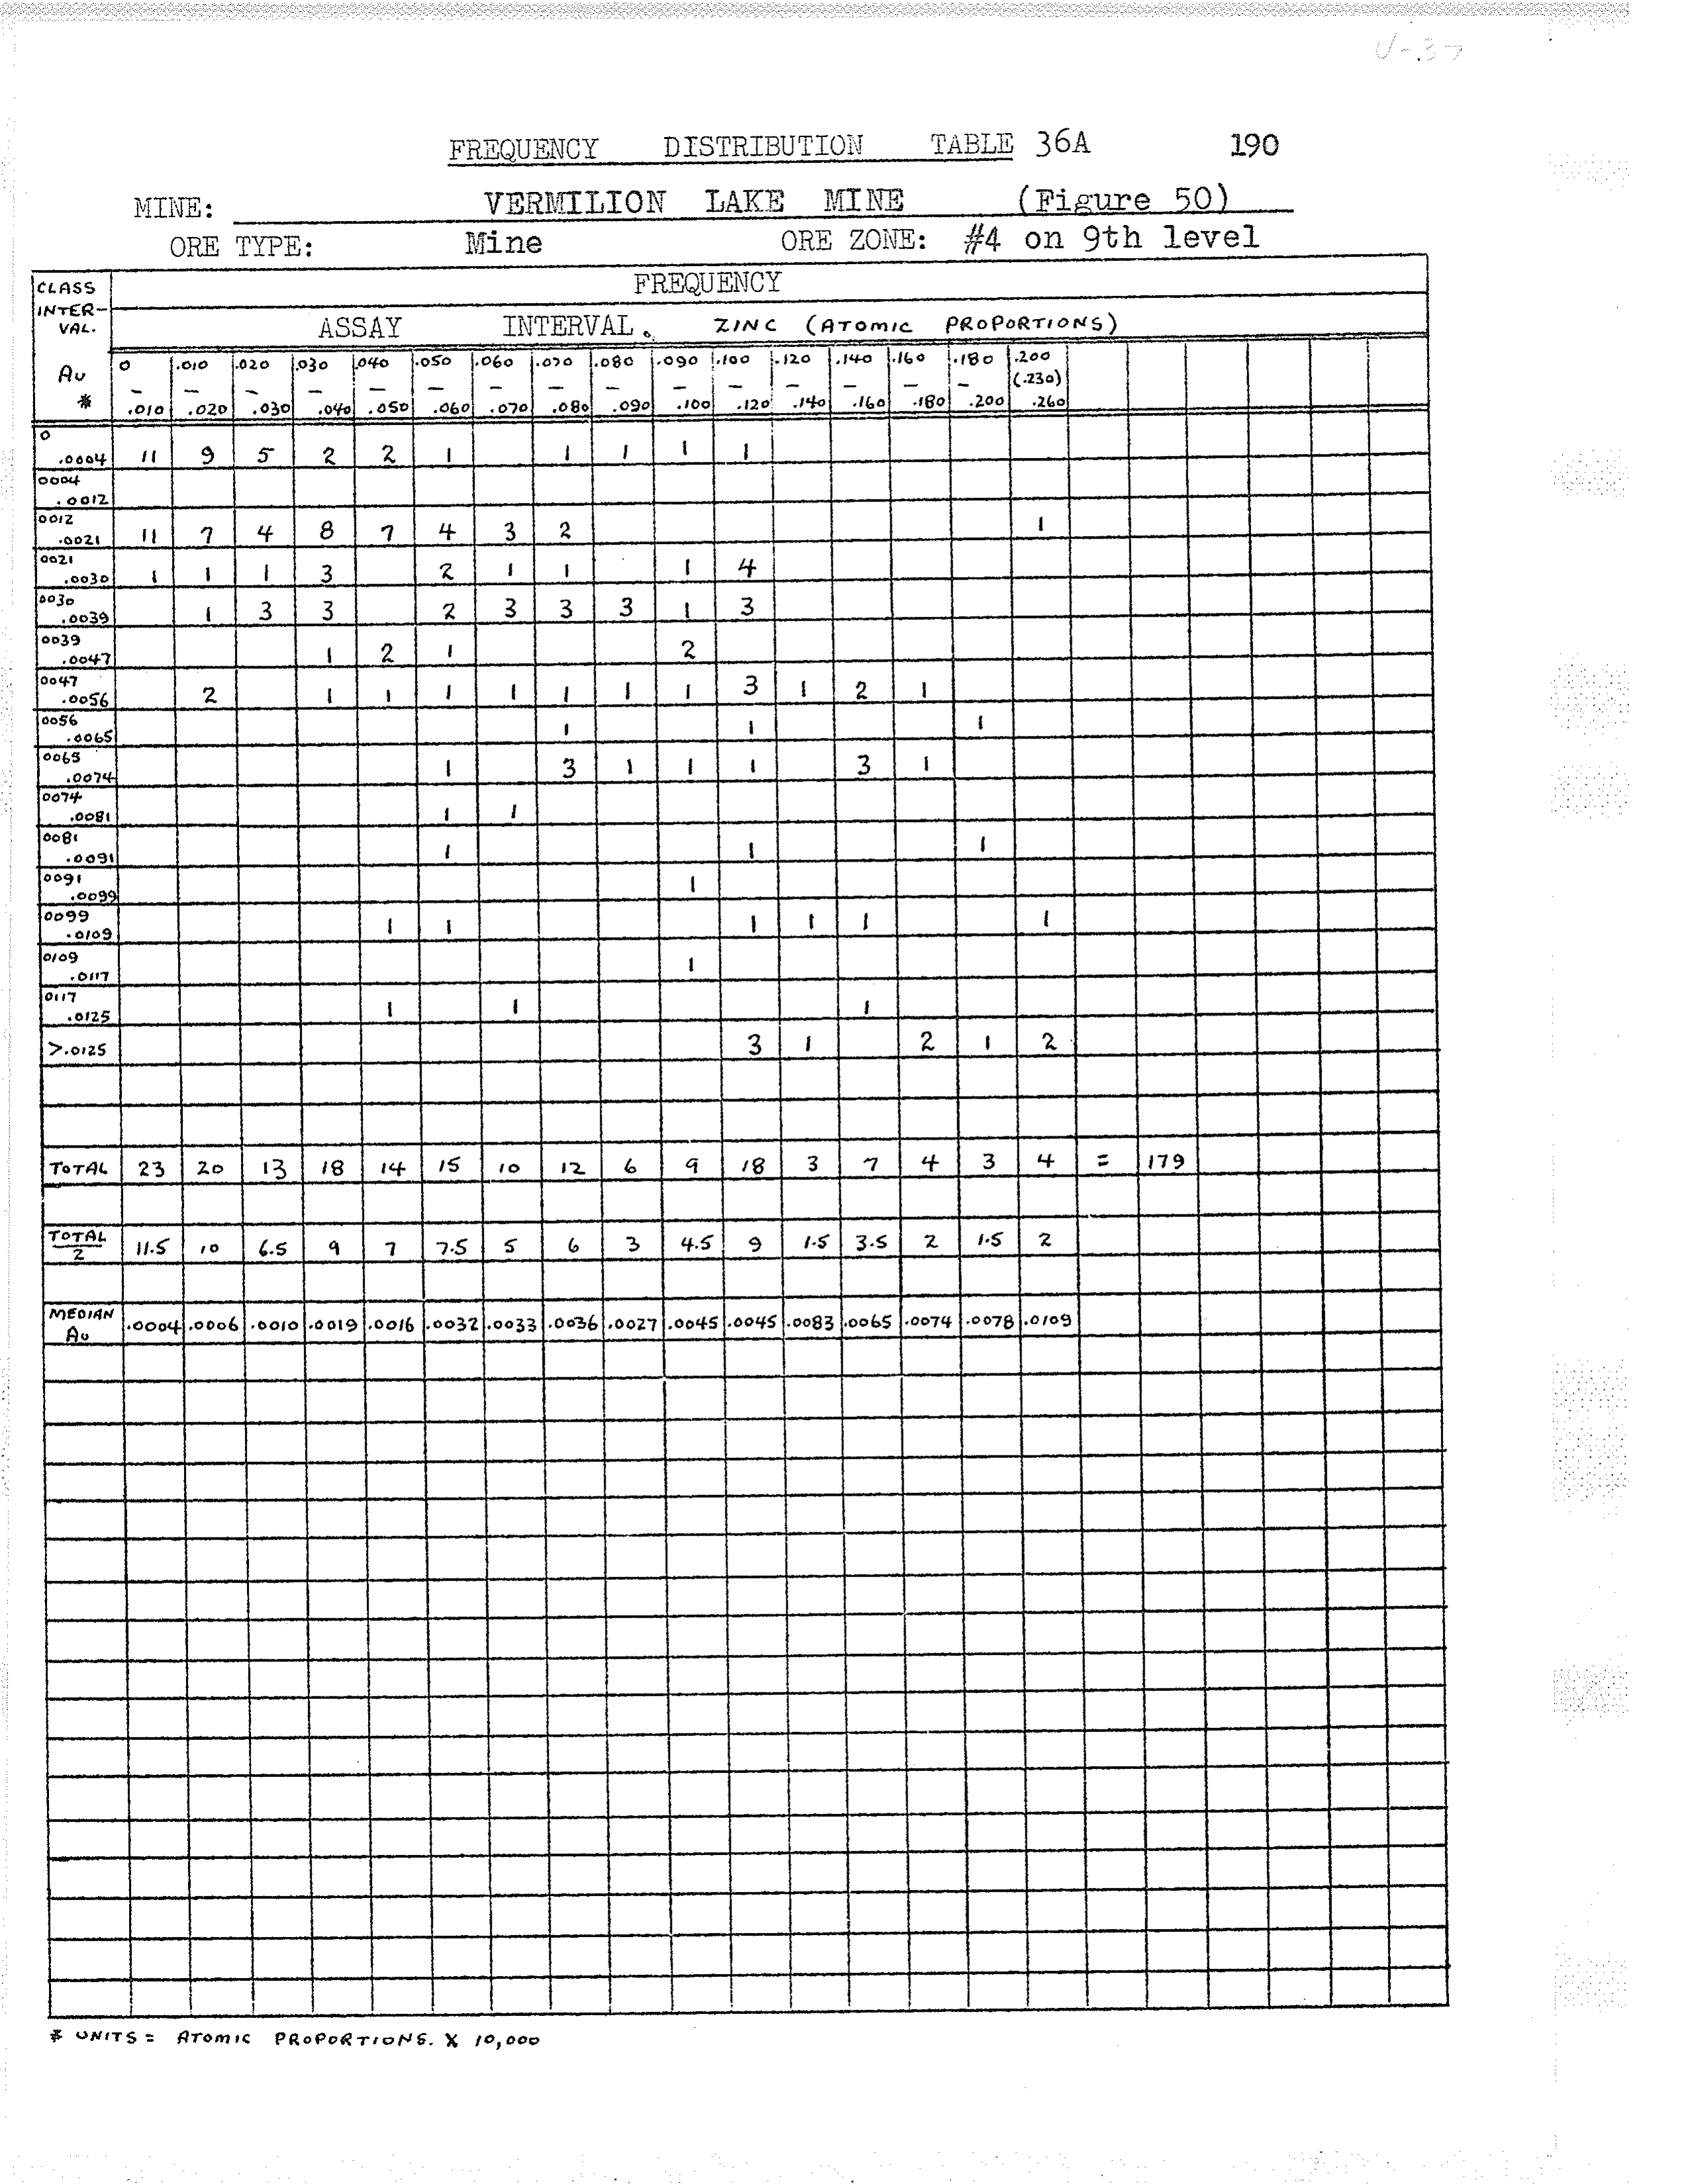 U-37
FREQUENCY DISTRIBUTION TABLE 36A 190
MINE: VERMILION LAKE MINE (Figure 50)
ORE TYPE: Mine ORE ZONE: #4 on 9th level
CLASS INTER-VAL. FREQUENCY
ASSAY INTERVAL. ZINC (ATOMIC PROPORTIONS)
Au * 0 – .010 .010 – .020 .020 – .030 .030 – .040 .040 – .050 .050 – .060 .060 – .070 .070 – .080 .080 – .090 .090 – .100 .100 – .120 .120 – .140 .140 – .160 .160 – .180 .180 – .200 .200 (.230) .260
0 .0004 11 9 5 2 2 1 1 1 1 1
0004 .0012
0012 .0021 11 7 4 8 7 4 3 2 1
0021 .0030 1 1 1 3 2 1 1 1 4
0030 .0039 1 3 3 2 3 3 3 1 3
0039 .0047 1 2 1 2
0047 .0056 2 1 1 1 1 1 1 1 3 1 2 1
0056 .0065 1 1 1
0065 .0074 1 3 1 1 1 3 1
0074 .0081 1 1
0081 .0091 1 1 1
0091 .0099 1
0099 .0109 1 1 1 1 1 1
0109 .0117 1
0117 .0125 1 1 1
>.0125 3 1 2 1 2
TOTAL 23 20 13 18 14 15 10 12 6 9 18 3 7 4 3 4 = 179
TOTAL 2 11.5 10 6.5 9 7 7.5 5 6 3 4.5 9 1.5 3.5 2 1.5 2
MEDIAN Au .0004 .0006 .0010 .0019 .0016 .0032 .0033 .0036 .0027 .0045 .0045 .0083 .0065 .0074 .0078 .0109
* UNITS = ATOMIC PROPORTIONS. X 10,000